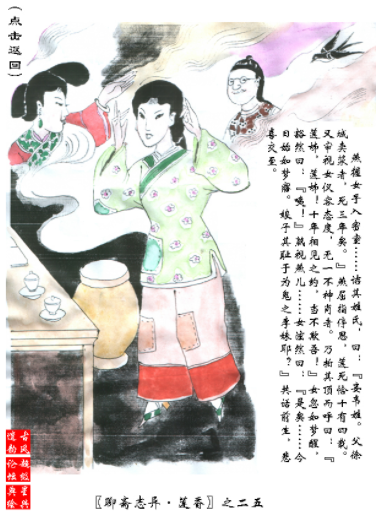 燕握女手入密室……诘其姓氏，曰：『妾韦姓。父徐
城卖浆者，死三年矣。』燕屈指停思，莲死恰十有四载。
又审视女仪容态度，无一不神肖者。乃拍其顶而呼曰：『
莲姊，莲姊！十年相见之约，当不欺吾！』女忽如梦醒，
豁然曰：『咦！』熟视燕儿……女泫然曰：『是矣……今
日始如梦寤。娘子其耻于为鬼之李妹耶？』共话前生，悲
喜交至。
（点击返回）
〖聊斋志异·莲香〗之二五